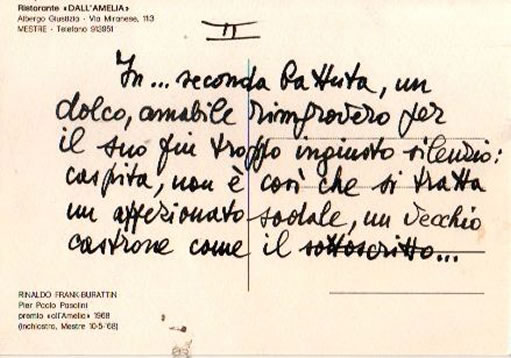 Ristorante «DALL'AMELIA»
Albergo Giustizia - Via Miranese, 113
MESTRE - Telefono 913951
II
In... seconda battuta, un
dolco, amabile rimprovero per
il suo fin troppo ingiusto silenzio:
caspita, non è così che si tratta
un affezionato sodale, un vecchio
castrone come il sottoscritto...
RINALDO FRANK-BURATTIN
Pier Paolo Pasolini
premio «all'Amelia» 1968
(Inchiostro, Mestre 10-5-'68)